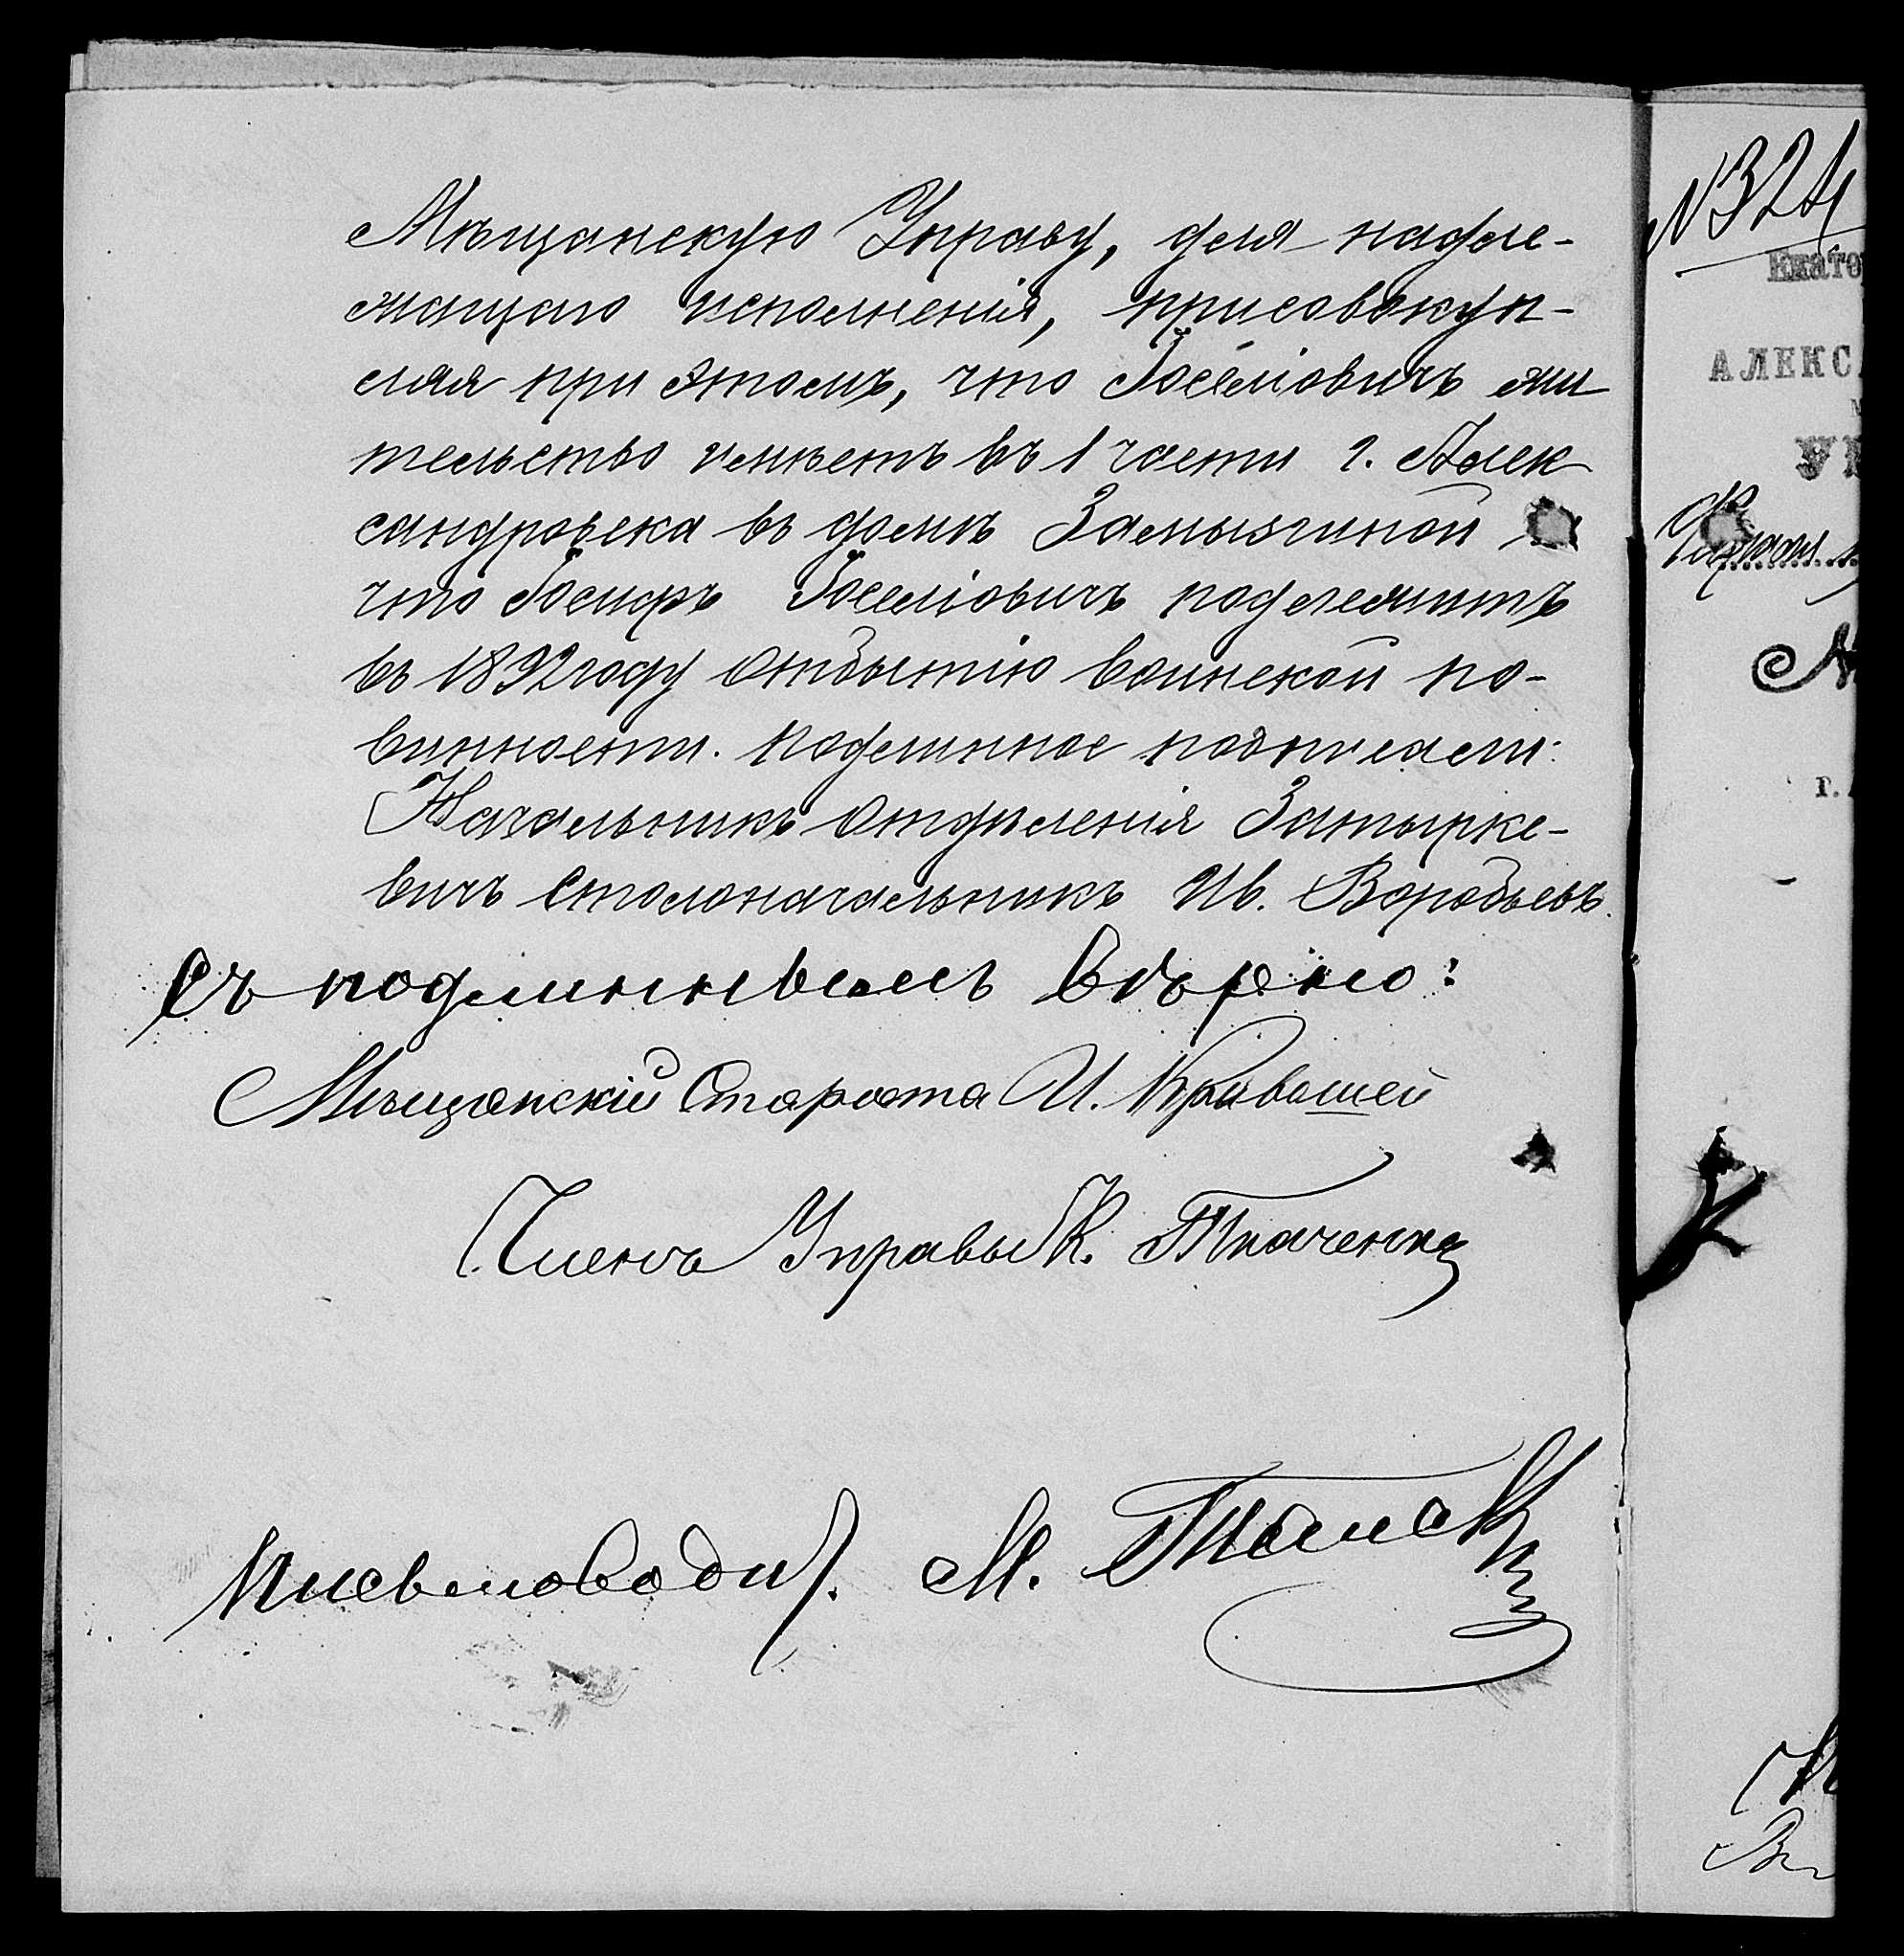 Мѣщанскую Управу, для надле-
жащаго исполненія, присовокуп-
ляя при этомъ, что Іоселіовичъ жи
тельство имѣетъ въ 1 части г. Алек
сандровска въ домѣ Замызгиной
что Іосифъ Іоселіовичъ подлежитъ
въ 1892 году отбытію воинской по-
винности. Подлинное подписали:
Начальникъ Отдѣленія Затырке-
вичъ Столоначальникъ Ив. Воробьевъ.
Съ подлиннымъ вѣрно:
Мѣщанскій Староста И.
Членъ Управы К. Ткаченко
Письмоводит. М.
N324
Екато
АЛЕКС
УП
г. А